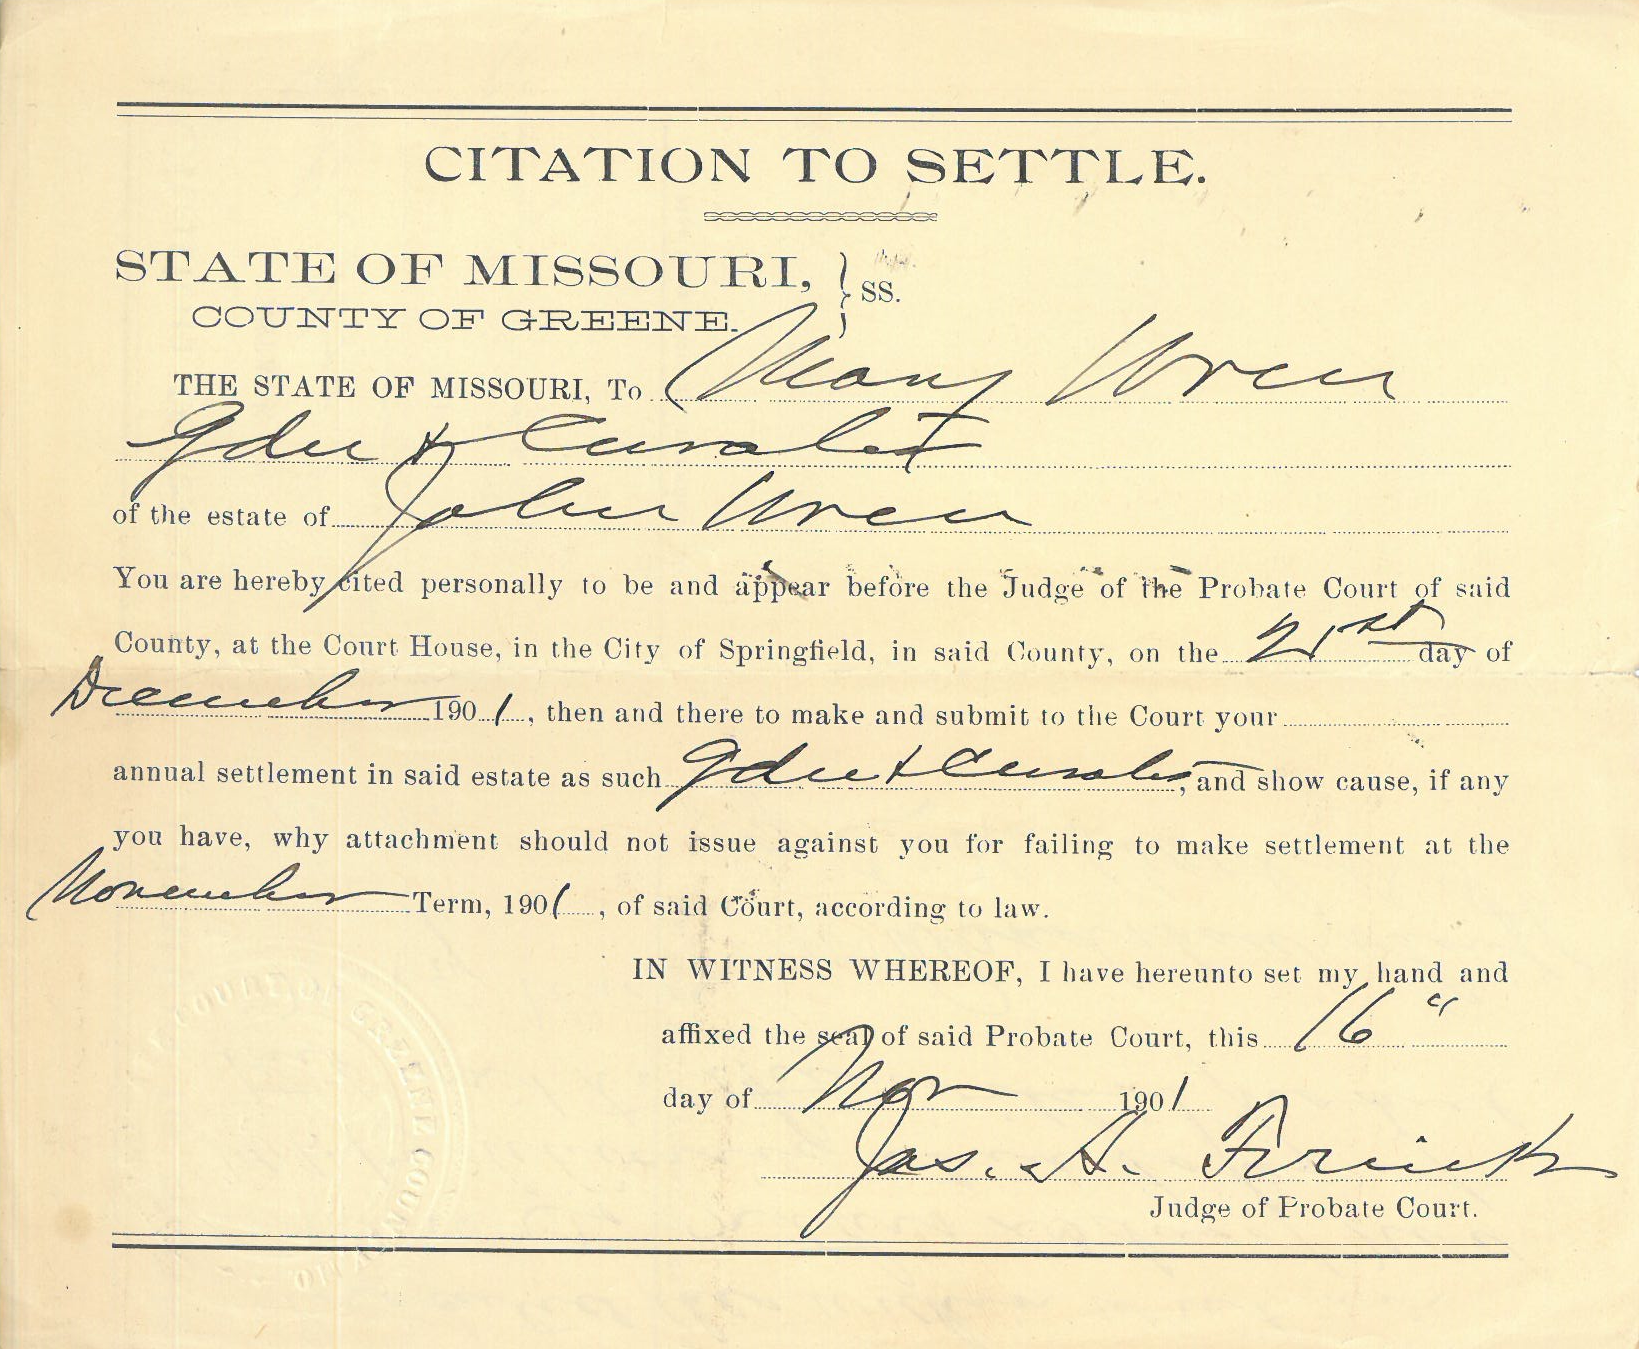 CITATION TO SETTLE.
STATE OF MISSOURI, } SS.
COUNTY OF GREENE.
THE STATE OF MISSOURI, To Mary Wren
Gdn & Curat
of the estate of John Wren
You are hereby cited personally to be and appear before the Judge of the Probate Court of said
County, at the Court House, in the City of Springfield, in said County, on the 21st day of
December 1901, then and there to make and submit to the Court your
annual settlement in said estate as such Gdn & Curat, and show cause, if any
you have, why attachment should not issue against you for failing to make settlement at the
November Term, 1901, of said Court, according to law.
IN WITNESS WHEREOF, I have hereunto set my hand and
affixed the seal of said Probate Court, this 16"
day of Nov 1901
Jas. A. Frink
Judge of Probate Court.
COURT OF GREENE COUNTY MO